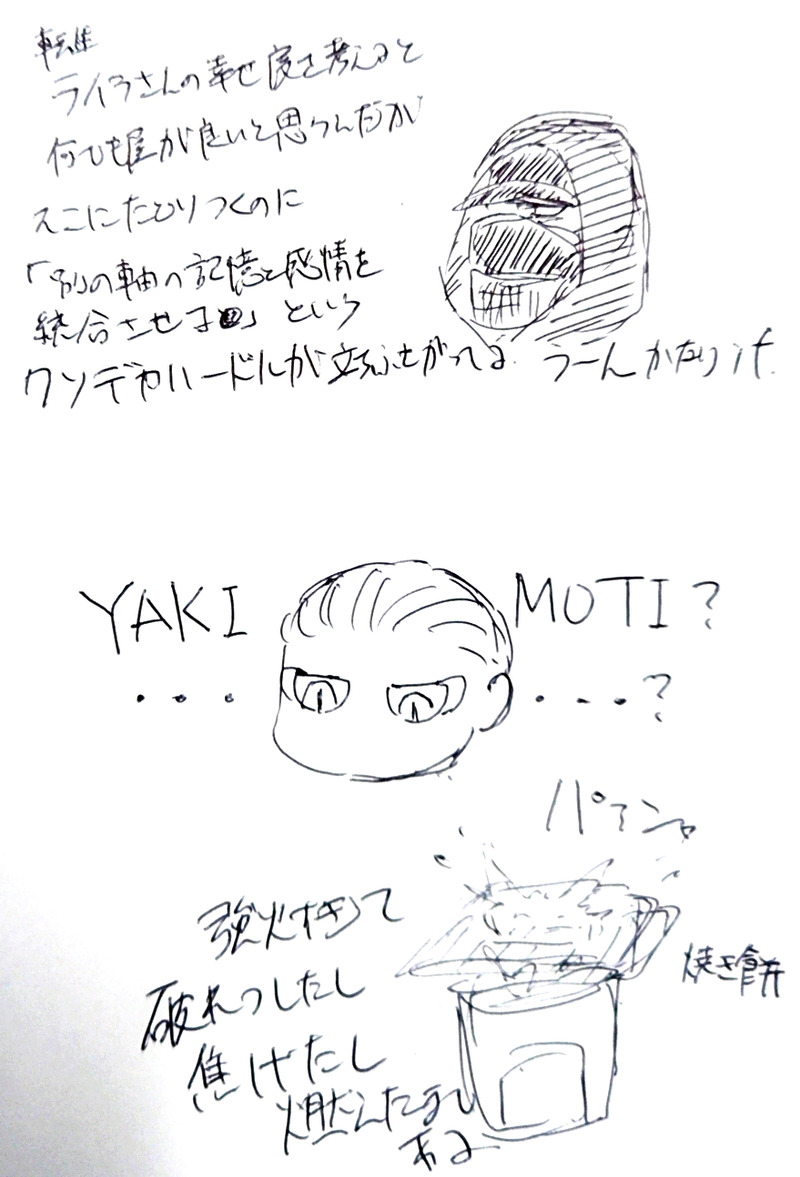 転生
ライラさんの幸せ度を考えると
何でも屋が良いと思うんだが
そこにたどりつくのに
「別の軸の記憶と感情を
統合させる」という
クソデカハードルが立ふせがってる うーん かなり
YAKI MOTI?
・・・ ・・・?
強火すぎて
破れつしたし
焦げたし
燃えたまし
ある
焼き餅